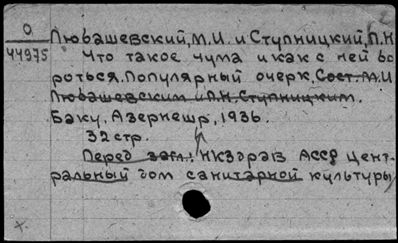 0
44975
Любашевский, М.И. и Ступницкий, П.Н
Что такое чума и как с ней бо
роться. Популярный очерк. Сост. М.И
Любашевским и П.Н. Ступницким.
Баку, Азернешр, 1936.
32 стр.
Перед загл.: НКЗдрав АССР Цент-
ральный дом санитарной культуры